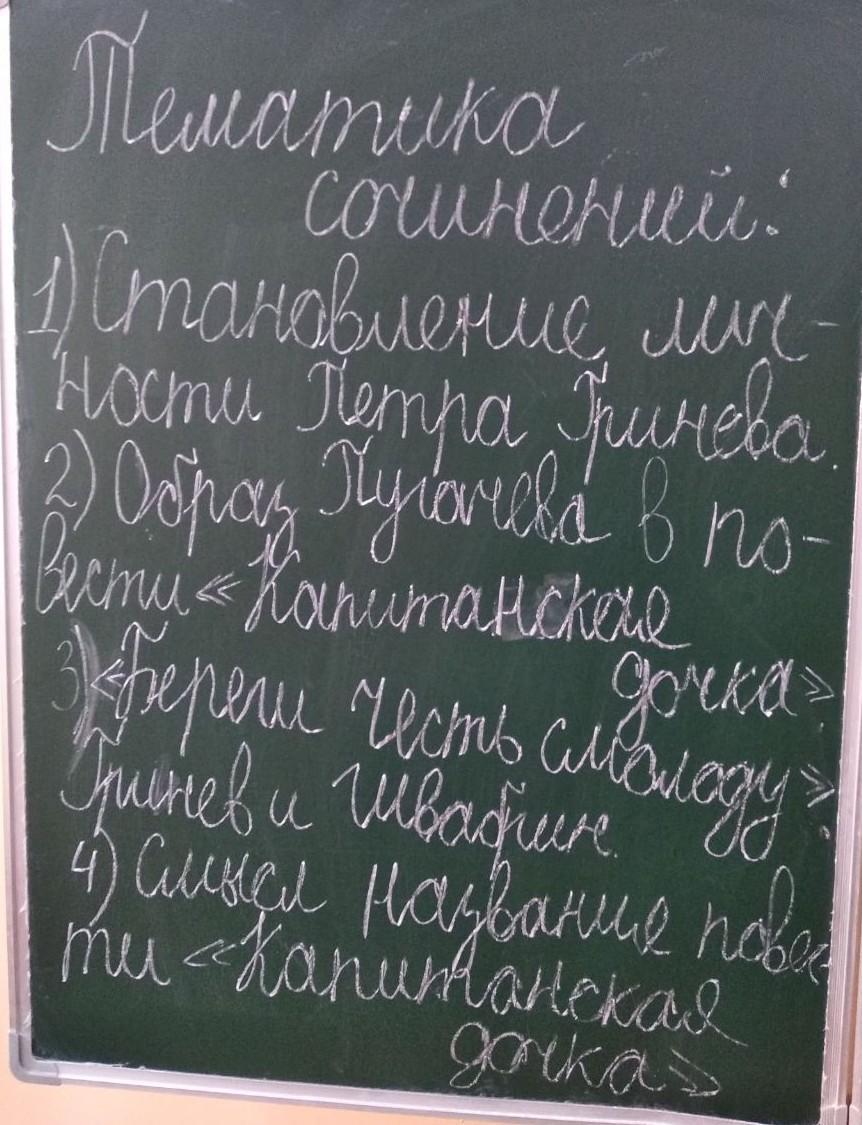 Тематика
сочинений:
1) Становление лич-
ности Петра Гринева.
2) Образ Пугачева в по-
вести «Капитанская
дочка»
3) «Береги честь смолоду».
Гринев и Швабрин.
4) Смысл название повес-
ти «Капитанская
дочка»